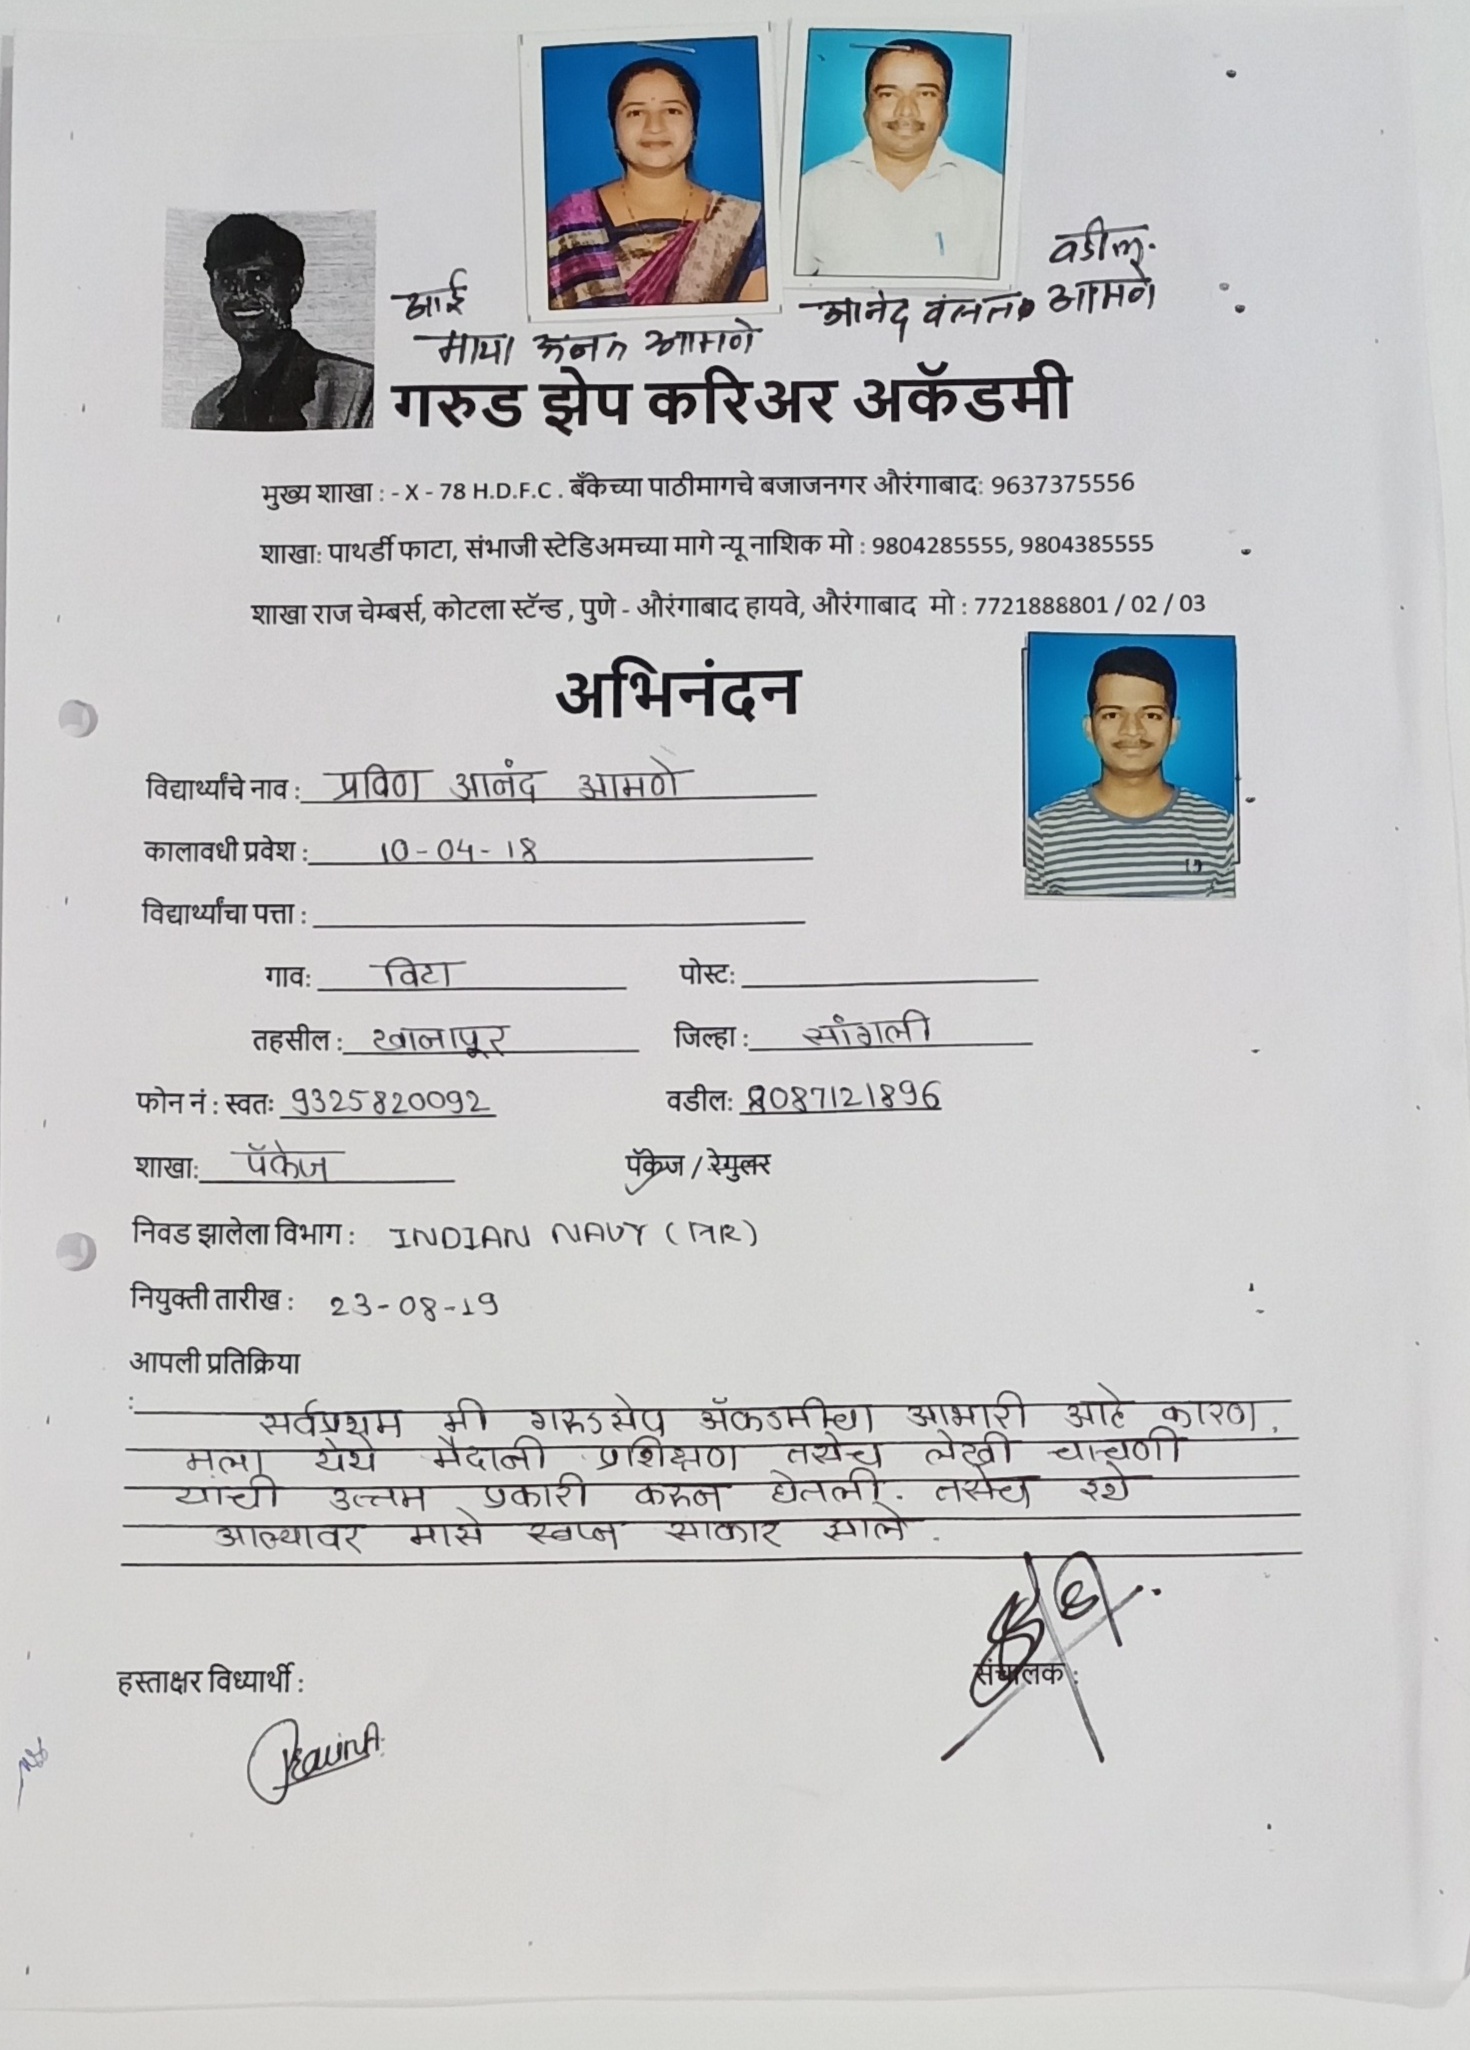 आई
वडील.
माया आनंद आमणे
आनंद वसंत आमणे
गरुड झेप करिअर अकॅडमी
मुख्य शाखा : - X - 78 H.D.F.C . बँकेच्या पाठीमागचे बजाजनगर औरंगाबाद: 9637375556
शाखा: पाथर्डी फाटा, संभाजी स्टेडिअमच्या मागे न्यू नाशिक मो : 9804285555, 9804385555
शाखा राज चेम्बर्स, कोटला स्टॅन्ड , पुणे - औरंगाबाद हायवे, औरंगाबाद मो : 7721888801 / 02 / 03
अभिनंदन
विद्यार्थ्यांचे नाव : प्रविण आनंद आमणे
कालावधी प्रवेश : 10-04-18
विद्यार्थ्यांचा पत्ता :
गाव: विटा पोस्ट:
तहसील : खानापूर जिल्हा : सांगली
फोन नं : स्वतः 9325820092 वडील: 8087121896
शाखा: पॅकेज पॅकेज / रेगुलर
निवड झालेला विभाग : INDIAN NAVY (AR)
नियुक्ती तारीख : 23-08-19
आपली प्रतिक्रिया
:
सर्वप्रथम मी गरुडझेप ॲकडमीचा आभारी आहे कारण,
मला येथे मैदानी प्रशिक्षण तसेच लेखी चाचणी
यांची उत्तम प्रकारी करुन घेतली. तसेच इथे
आल्यावर माझे स्वप्न साकार झाले.
हस्ताक्षर विध्यार्थी : संचालक :
PravinA.